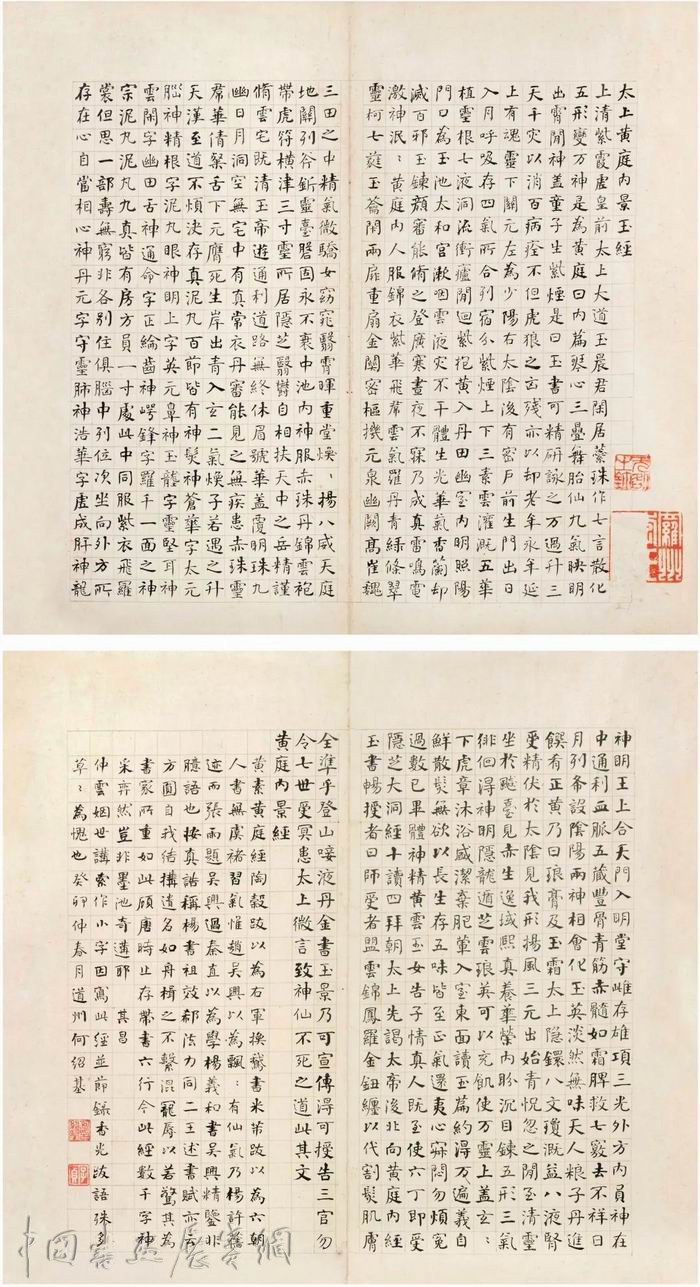 太上黃庭內景玉經
上清紫霞虛皇前太上大道玉晨君閑居蕊珠作七言散化
五形變万神是為黃庭曰內篇琴心三疊舞胎仙九氣映明
出霄間神蓋童子生紫煙是曰玉書可精研詠之万過升三
天千灾以消百病痊不但虎狼之㐫殘亦以却老年永年延
上有魂靈下關元左為少陽右太陰後有密戶前生門出日
入月呼吸存四氣所合列宿分紫煙上下三素雲灌溉五華
植靈根七液洞流衝廬間迴紫抱黃入丹田幽室內明照陽
門口為玉池太和官漱咽雲液灾不干體生光華氣香蘭却
滅百邪玉鍊顏審能脩之登廣寒晝夜不寐乃成真雷鳴電
激神泯：黃庭內人服錦衣紫華飛羣雲氣羅丹青綠條翠
靈柯七蕤玉籥閉兩扉重扇金關密樞機元泉幽闕高崔巍
三田之中精氣微驕女窈窕翳霄暉重堂煥：揚八威天庭
地關列谷斨靈臺盤固永不衰中池內神服赤珠丹錦雲袍
帶虎符橫津三寸靈所居隱芝翳鬱自相扶天中之岳精謹
脩雲宅既清玉帝遊通利道路無終休眉號華蓋覆明珠九
幽日月洞空無宅中有真常衣丹審能見之無疾患赤珠靈
帬華倩粲舌下元膺死生岸出青入玄二氣煥子若遇之升
天漢至道不煩決存真泥丸百節皆有神髮神蒼華字太元
腦神精根字泥丸眼神明上字英元鼻神玉壟字靈堅耳神
雲閑字幽田舌神通命字正綸齒神崿鋒字羅千一面之神
宗泥丸泥丸九真皆有房方員一寸處此中同服紫衣飛羅
裳但思一部壽無窮非各別住俱腦中列位次坐向外方所
存在心自當相心神丹元字守靈肺神浩華字虛成肝神龍
神明王上合天門入明堂守雌存雄項三光外方內員神在
中通利血脈五藏豐骨青筋赤髓如霜脾救七竅去不祥日
月列布設陰陽兩神相會化玉英淡然無味天人粮子丹進
饌有正黃乃曰琅膏及玉霜太上隱鐶八文瓊溉益八液腎
受精伏於太陰見我形揚風三元出始青怳忽之間至清靈
坐於飈臺見赤生逸域熙真養華榮內盼沉目鍊五形三氣
徘徊得神明隱龍遁芝雲琅英可以充飢使万靈上蓋玄：
下虎章沐浴盛潔棄肥葷入室東面讀玉篇約得万遍義自
鮮散髮無欲以長生存五味皆至正氣還夷心寂悶勿煩冤
過數已畢體神精黃雲玉女告子情真人既至使六丁即受
隱芝大洞經十讀四拜朝太上先謁太帝後北向黃庭內經
玉書暢授者曰師受者盟雲錦鳳羅金鈕纏以代割髮肌膚
全準手登山唼液丹金書玉景乃可宣傳得可授告三官勿
令七世受冥患太上微言致神仙不死之道此其文
黃庭內景經
黃素黃庭經陶穀跋以為右軍換鵝書米芾跋以為六朝
人書無虞褚習氣惟趙吳興以為飄：有仙氣乃楊許舊
迹而張雨題吳興過秦直以為學楊義和書吳興精鑒非
臆語也按真誥稱楊書祖效郗法力同二王述書賦亦云
方圓自我結構遺名如舟楫之不繫混寵辱以若驚其為
書家所重如此顧唐時止存帶書六行今此經數千字神
采弈然豈非墨池奇遘耶　其昌
仲雲姻世講索作小字因寫此經並節錄香光跋語殊多
草：為愧也癸卯仲春月道州何紹基